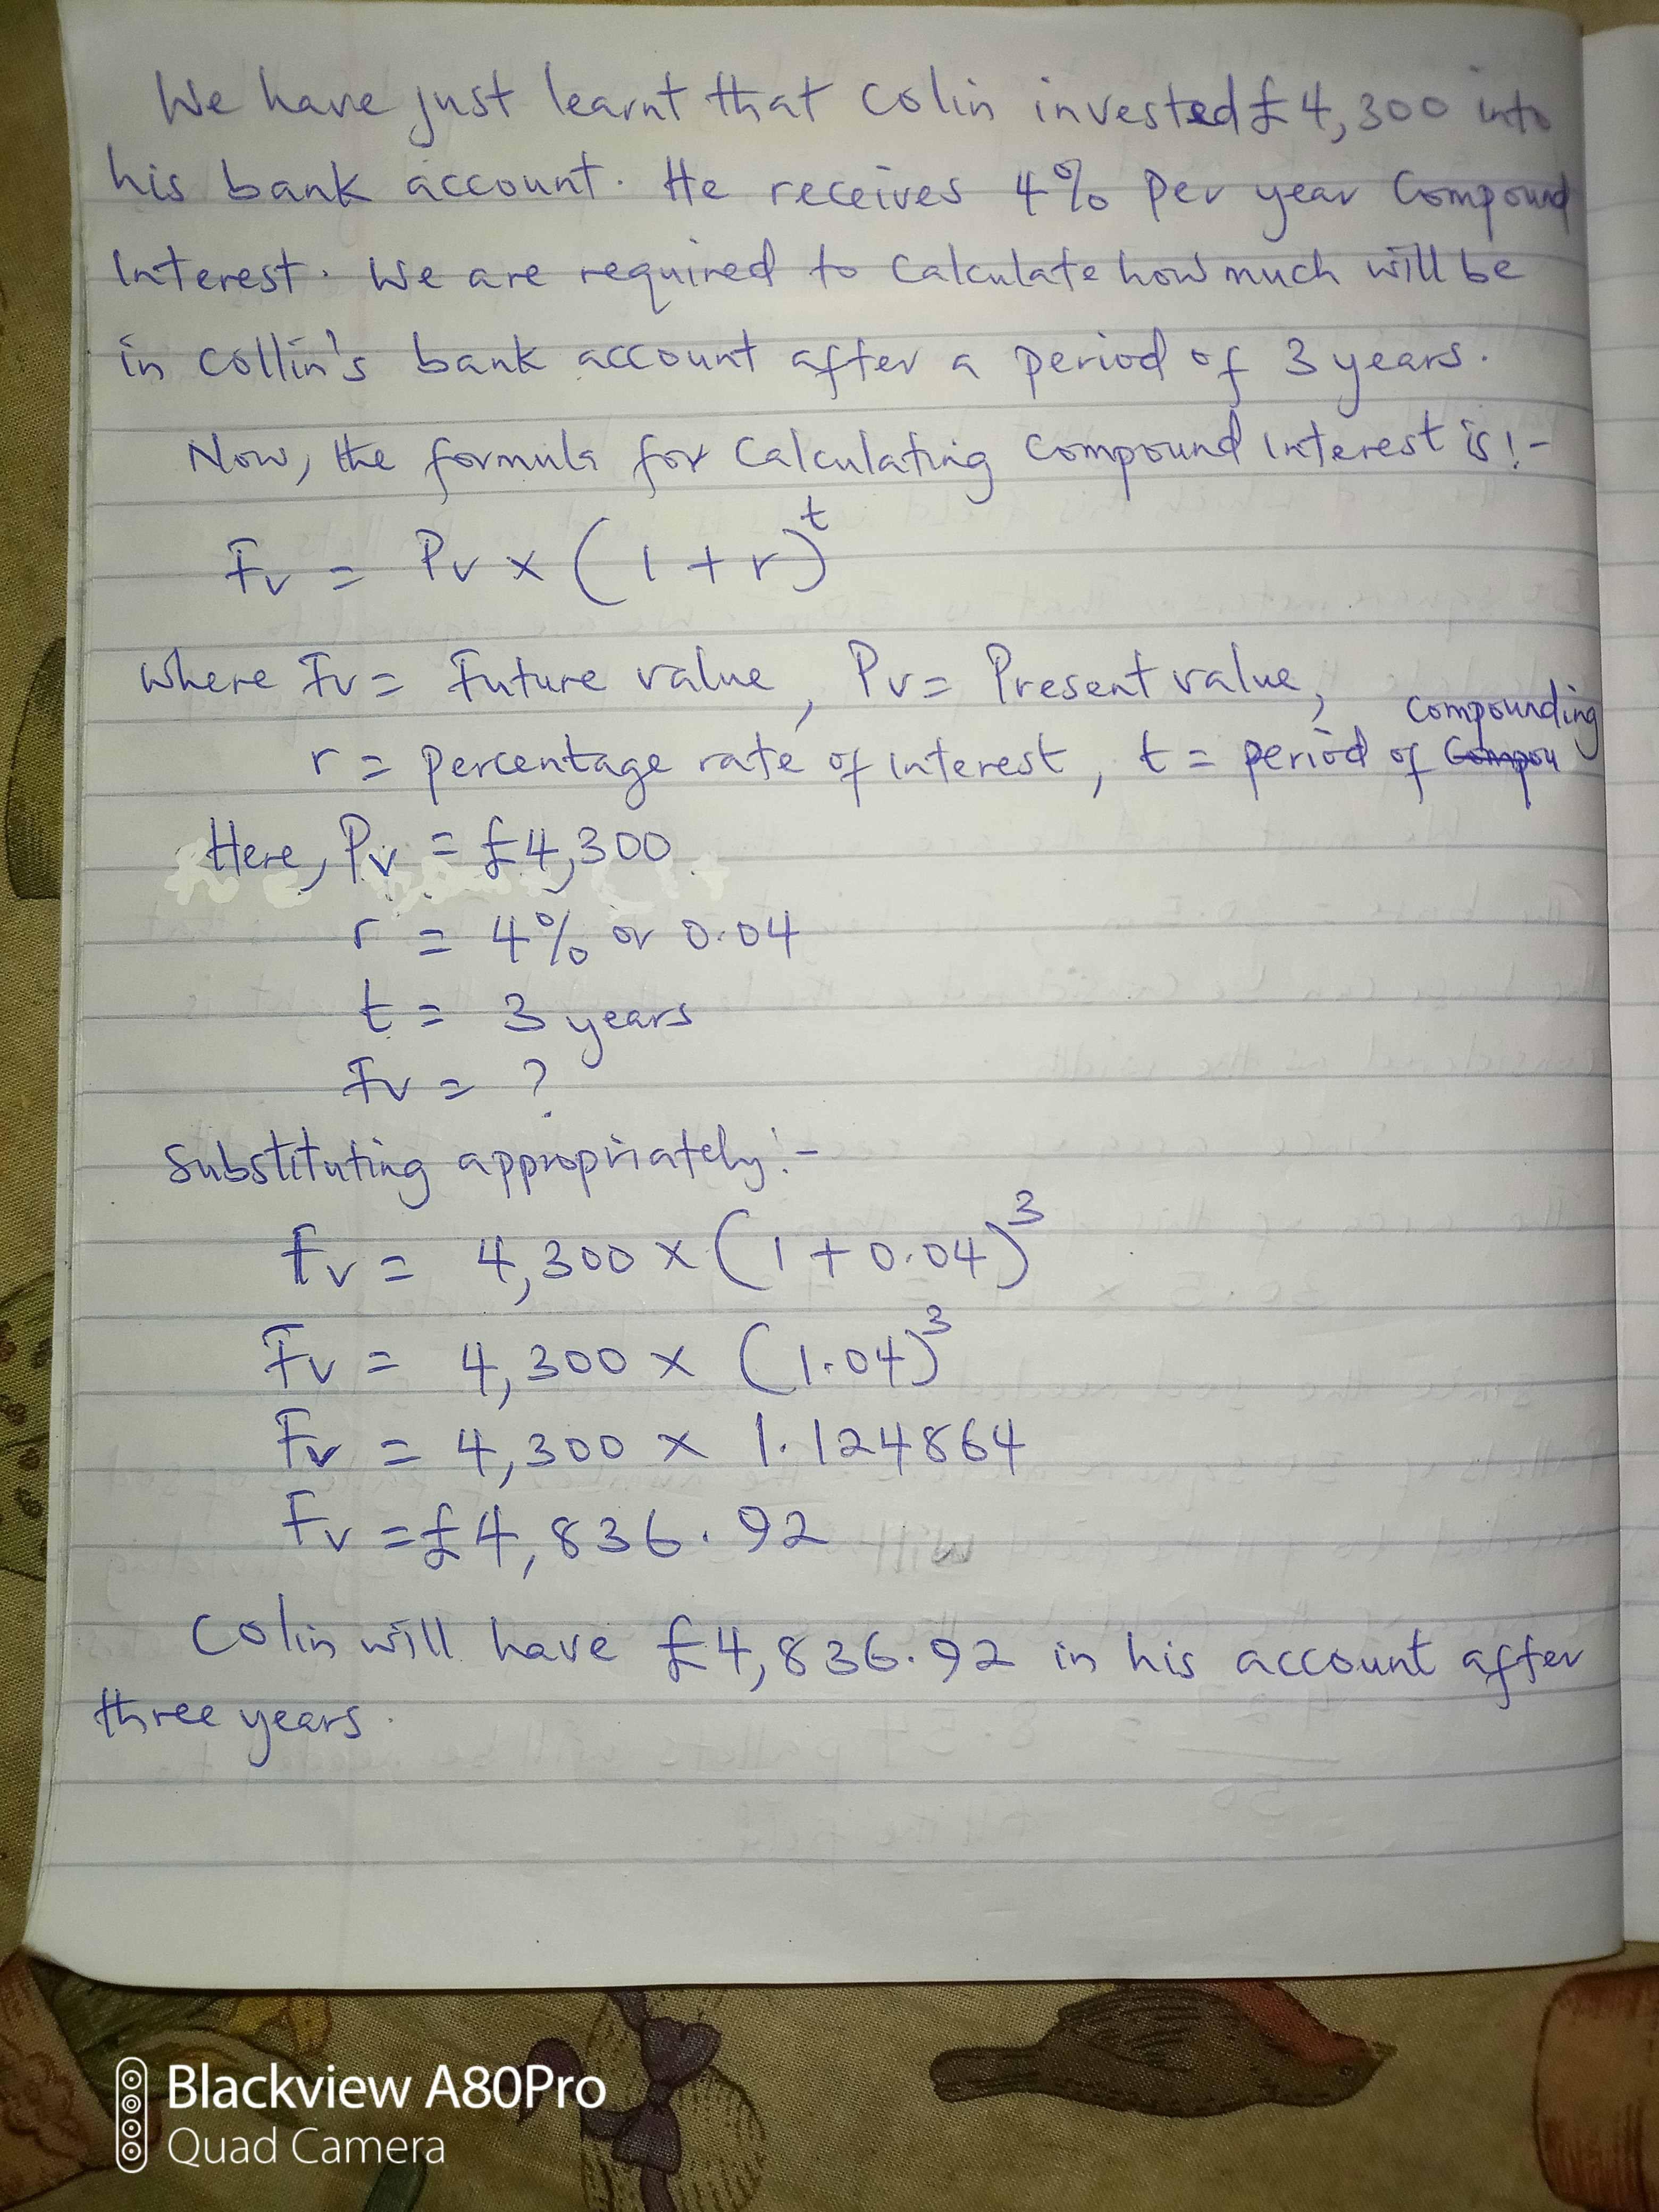 We have just learnt that Colin invested £4,300 into
his bank account. He receives 4% per year Compound
Interest. We are required to Calculate how much will be
in Collin's bank account after a period of 3 years.
Now, the formula for Calculating Compound Interest is:-
Fv = Pv x (1 + r)^t
where Fv = Future value, Pv = Present value,
r = percentage rate of interest, t = period of compounding
Here, Pv = £4,300
r = 4% or 0.04
t = 3 years
Fv = ?
Substituting appropriately:-
Fv = 4,300 x (1 + 0.04)^3
Fv = 4,300 x (1.04)^3
Fv = 4,300 x 1.124864
Fv = £4,836.92
Colin will have £4,836.92 in his account after
three years.
Blackview A80Pro
Quad Camera